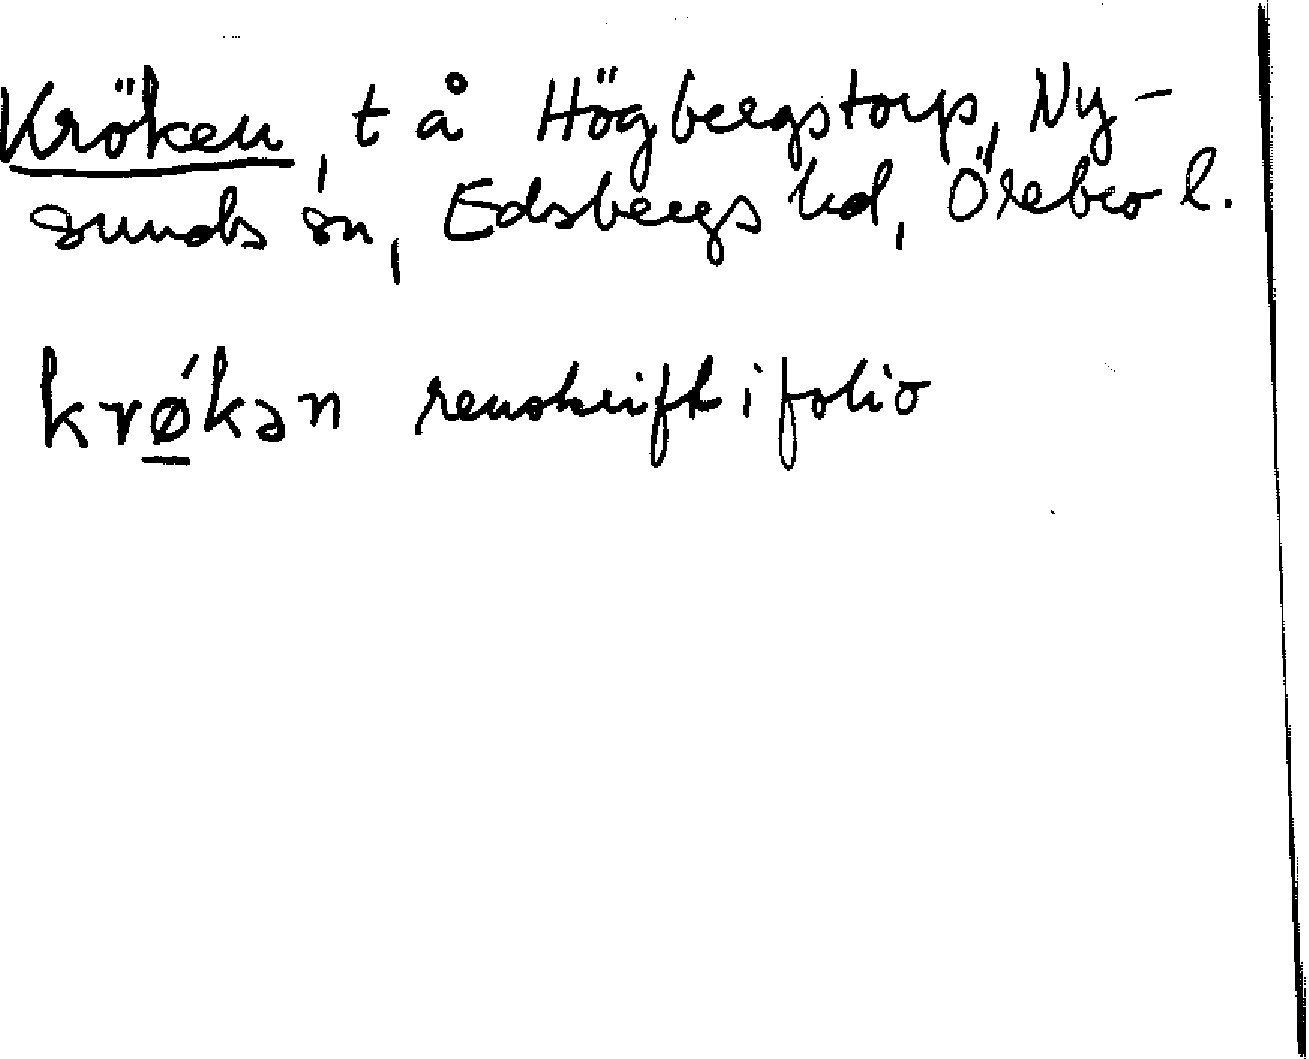 Kröken, t å Högbergstorp, Ny-
sunds sn, Edsbergs hd, Örebro l.
krǿ̲kən renskrift i folio